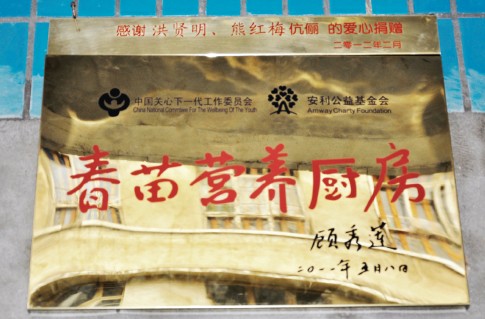 感谢洪贤明、熊红梅伉俪的爱心捐赠
二零一二年二月
中国关心下一代工作委员会
China National Committee For The Wellbeing Of The Youth
安利公益基金会
Amway Charity Foundation
春苗营养厨房
顾秀莲
二〇一一年五月八日